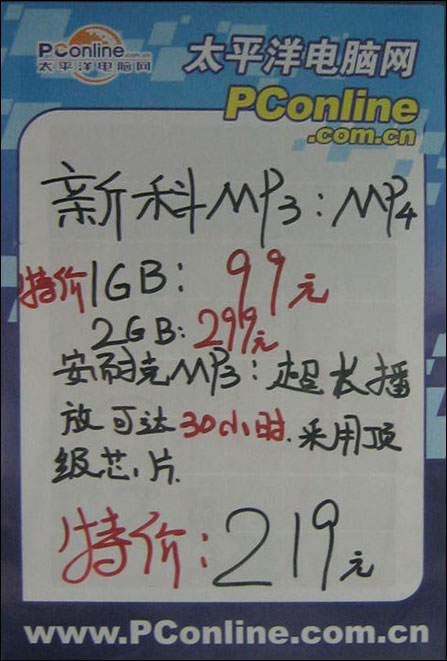 PConline
太平洋电脑网
太平洋电脑网
PConline
.com.cn
新科MP3:MP4
特价1GB: 99元
2GB:299元
安耐克MP3:超长播
放可达30小时.采用顶
级芯片.
特价:219元
www.PConline.com.cn